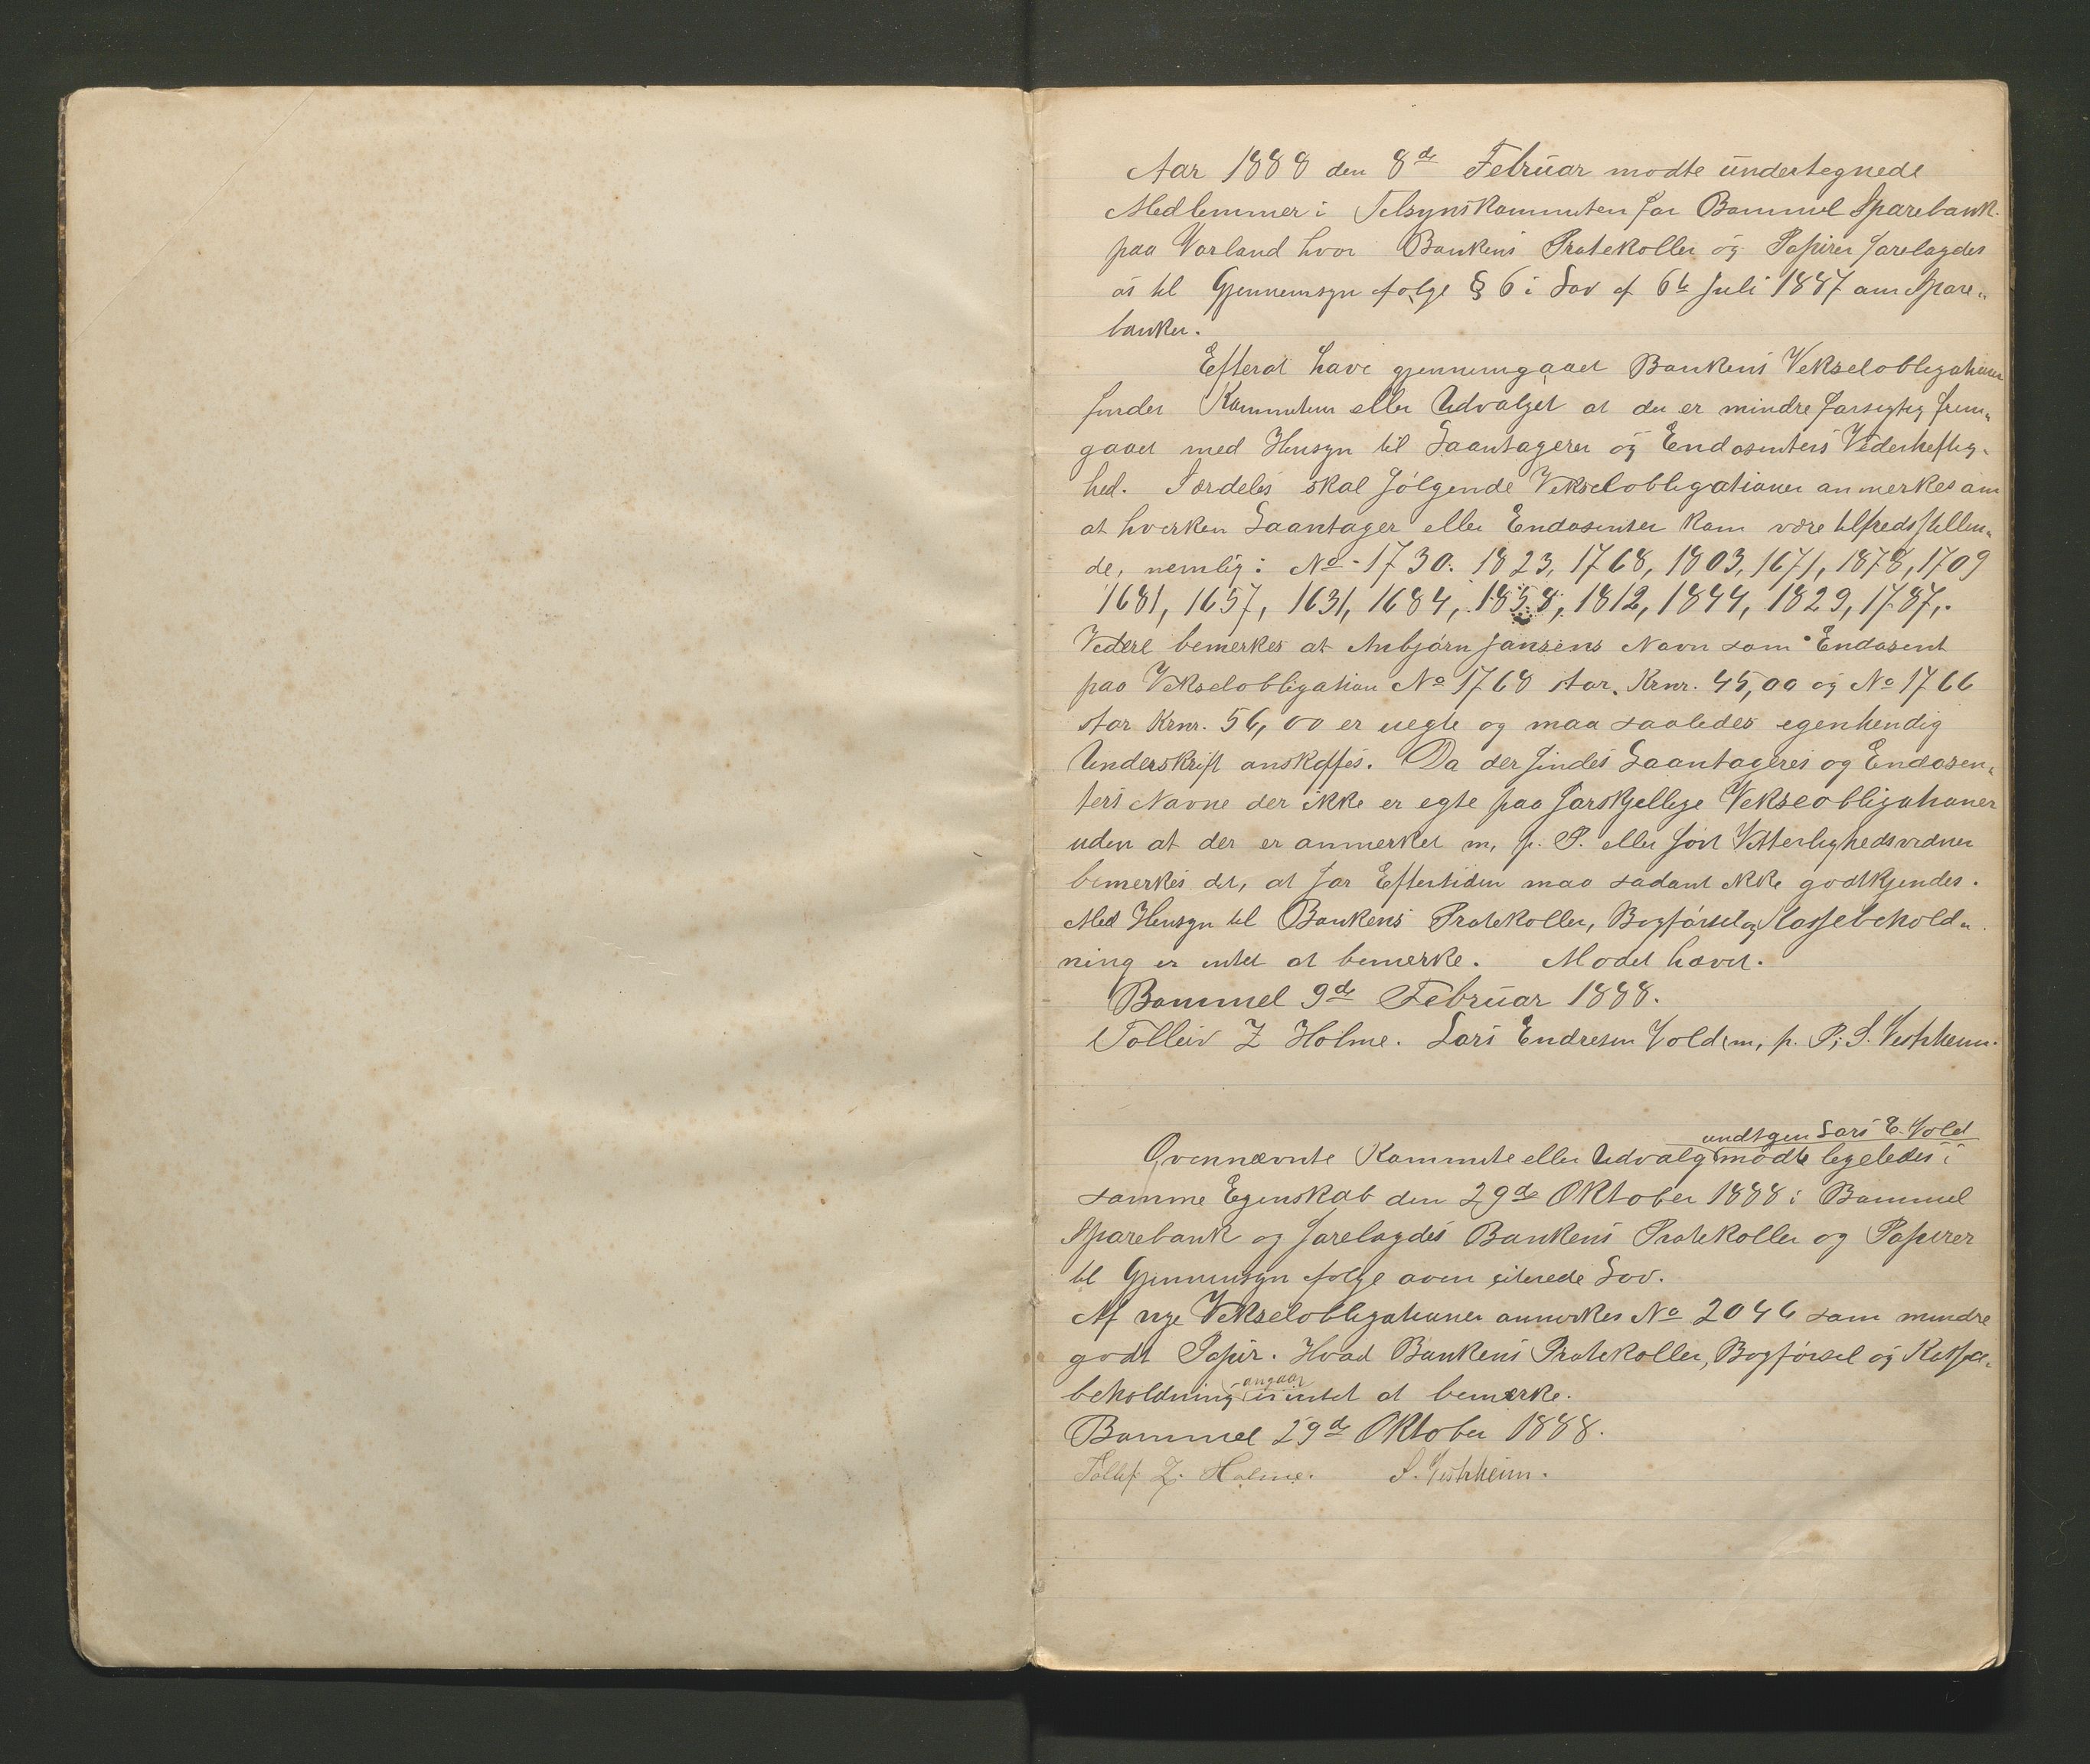 Aar 1888 den 8de Februar modte undertegnede
Medlemmer i Telsynskommiten for Bømmel Sparebank
paa Vorland hvor Bankens Protekoller og Papirer forelagdes
os til Gjennemsyn følge § 6 i Lov af 6te Juli 1887 om Spare„
banker.
Efterat have gjennemgaaet Bankens Vekselobligationer
finder Kommiteen eller Udvalget at der er mindre forsigtig frem„
gaaet med Hensyn til Laantagerer og Endosenters Vederheftig„
hed. Særdeles skal følgende Vekselobligationer anmerkes om
at hverken Laantager eller Endosenter kan være tilfredsstillen„
de, nemlig: No 1730. 1823, 1768, 1803, 1671, 1878, 1709
1681, 1657, 1631, 1684, 1858, 1812, 1844, 1829, 1787,.
Videre bemerkes at Anbjørn Jansens Navn som Endosent
paa Vekselobligation No 1768 stor. Krnr. 45,00 og No 1766
stor Krnr. 56,00 er uegte og maa saaledes egenhendig
Underskrift anskaffes. Da der findes Laantageres og Endosen„
ters Navne der ikke er egte paa forskjellige Vekseobligationer
uden at der er anmerket m, p. P. eller ført Vitterlighedsvidner
bemerkes det, at for Eftertiden maa sadant ikke godtkjendes.
Med Hensyn til Bankens Protekoller, Bogførsel og Kassebehold„
ning er intet at bemerke. Modet hævet.
Bømmel 9de Februar 1888.
Tolleiv Z Holme. Lars Endresen Vold m, p. P; S. Vestrheim.
undtgen Lars E. Vold
Ovennævnte Kommite eller Udvalg modte legeledes i
samme Egenskab den 29de Oktober 1888 i Bømmel
Sparebank og forelagdes Bankens Protekoller og Papirer
til Gjennemsyn følge oven siterede Lov.
Af nye Vekselobligationer anmerkes No 2046 som mindre
godt Papir. Hvad Bankens Protekoller, Bogførsel og Kasse„
beholdning angaar er intet at bemerke.
Bømmel 29de Oktober 1888.
Tollef Z. Holme. S. Vestrheim.